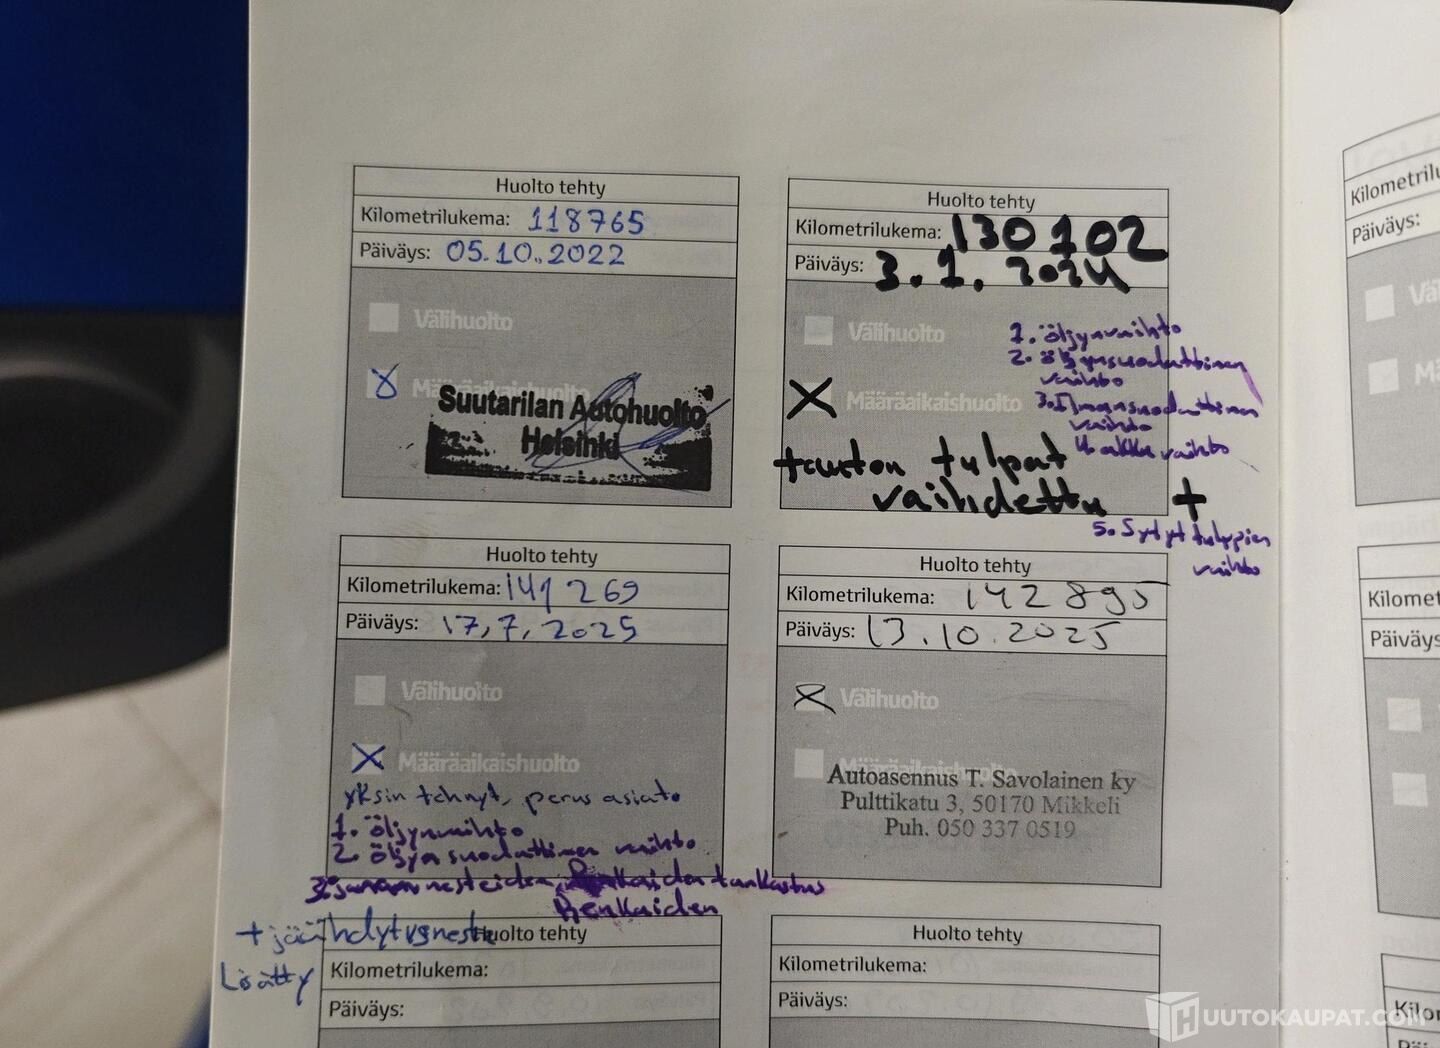 Huolto tehty
Kilometrilukema: 118765
Päiväys: 05.10.2022
Välihuolto
Määräaikaishuolto
Suutarilan Autohuolto
Helsinki
Huolto tehty
Kilometrilukema: 130102
Päiväys: 3.1.2024
Välihuolto
Määräaikaishuolto
1. öljynvaihto
2. öljynsuodattimen
vaihto
3. Ilmansuodattimen
vaihto
4 akku vaihto
+auton tulpat
vaihdettu +
5. Sytyt tulppien
vaihto
Huolto tehty
Kilometrilukema: 141 269
Päiväys: 17,7,2025
Välihuolto
Määräaikaishuolto
yksin tehnyt, perus asiat
1. öljynvaihto
2. öljynsuodattimen vaihto
3. nesteiden, tarkastus
Renkaiden
+ jäähdytysneste
Lisätty
Huolto tehty
Kilometrilukema: 142 895
Päiväys: 13.10.2025
Välihuolto
Autoasennus T. Savolainen ky
Pulttikatu 3, 50170 Mikkeli
Puh. 050 337 0519
Huolto tehty
Kilometrilukema:
Päiväys:
Huolto tehty
Kilometrilukema:
Päiväys:
Päiväys:
Päiväys:
HUUTOKAUPAT.COM